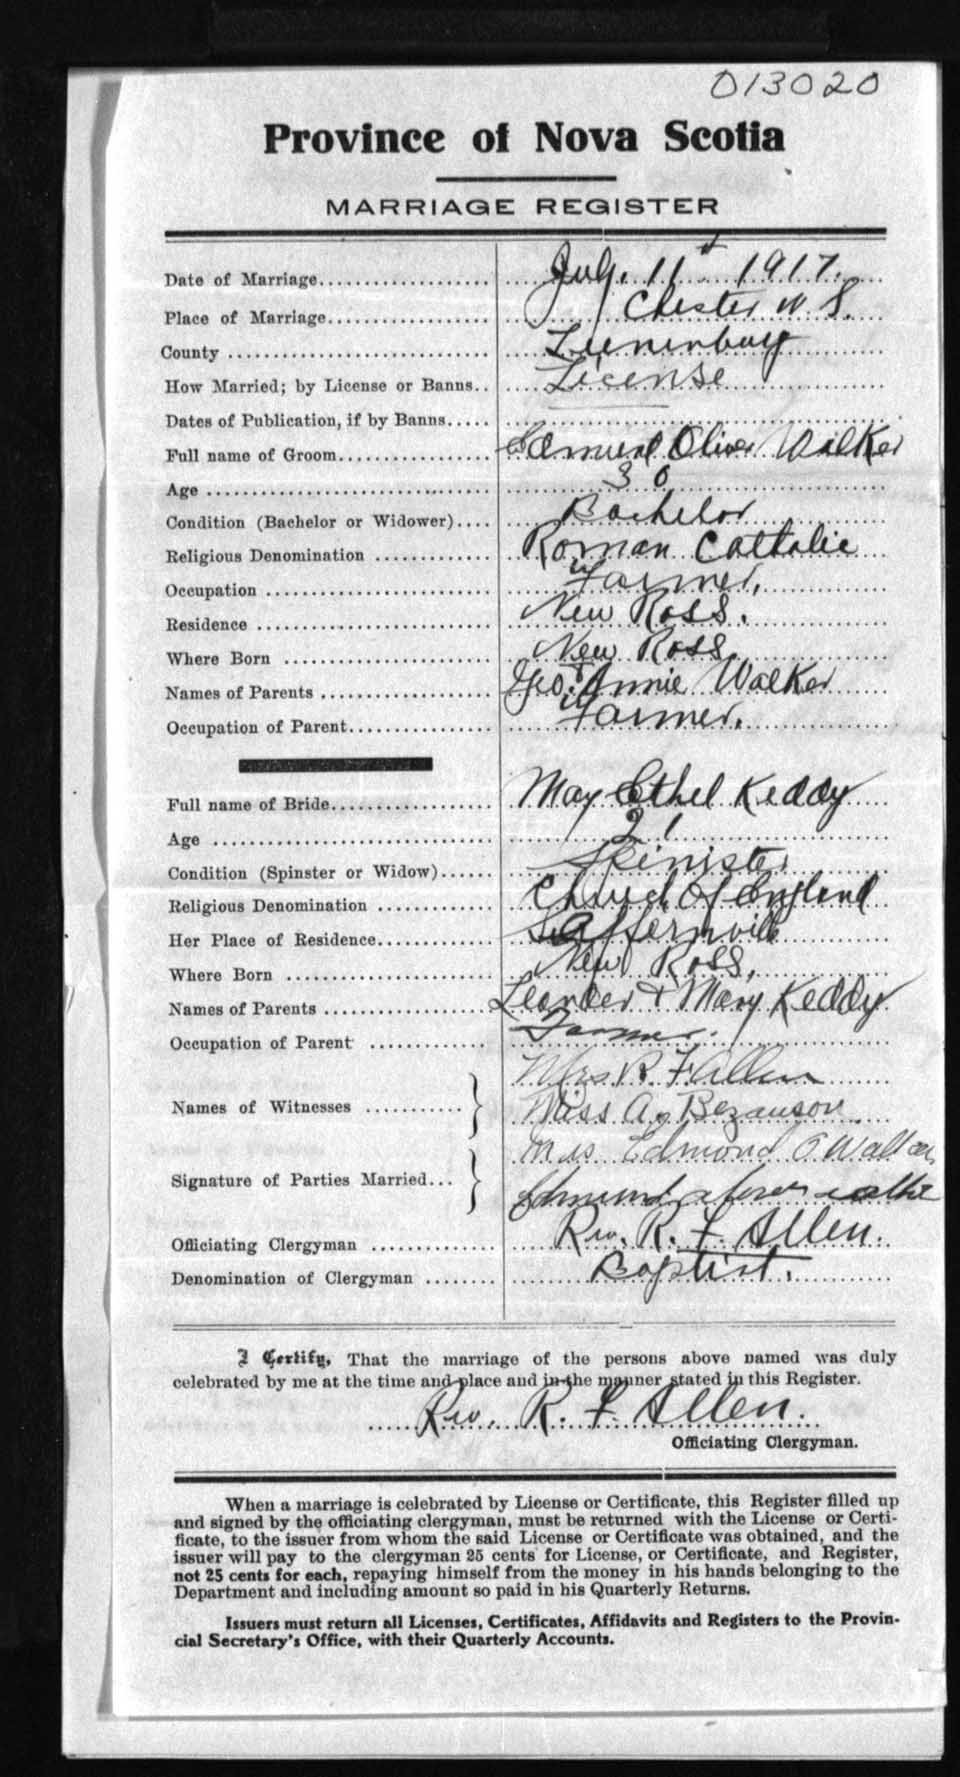 013020
Province of Nova Scotia
MARRIAGE REGISTER
Date of Marriage.................. July. 11 1917.
Place of Marriage................. Chester N. S.
County ............................ Lunenburg
How Married; by License or Banns.. License
Dates of Publication, if by Banns.....
Full name of Groom................ Oliver Walker
Age .............................. 30
Condition (Bachelor or Widower).... Bachelor
Religious Denomination ............ Roman Catholic
Occupation ........................ Farmer.
Residence ......................... New Ross.
Where Born ........................ New Ross.
Names of Parents .................. Geo. & Annie Walker
Occupation of Parent............... Farmer.
Full name of Bride................. May Ethel Keddy
Age ............................... 21
Condition (Spinster or Widow)...... Spinister
Religious Denomination ............ Church of England
Her Place of Residence.............
Where Born ........................ New Ross.
Names of Parents .................. Leander & Mary Keddy
Occupation of Parent .............. Farmer.
Mrs R. F Allen
Names of Witnesses ............ Miss A. Bezanson
Mrs Edmond O Walker
Signature of Parties Married...
Officiating Clergyman ............. Rev. R. F. Allen.
Denomination of Clergyman ........ Baptist.
I Certify, That the marriage of the persons above named was duly
celebrated by me at the time and place and in the manner stated in this Register.
Rev. R. F. Allen.
Officiating Clergyman.
When a marriage is celebrated by License or Certificate, this Register filled up
and signed by the officiating clergyman, must be returned with the License or Certi-
ficate, to the issuer from whom the said License or Certificate was obtained, and the
issuer will pay to the clergyman 25 cents for License, or Certificate, and Register,
not 25 cents for each, repaying himself from the money in his hands belonging to the
Department and including amount so paid in his Quarterly Returns.
Issuers must return all Licenses, Certificates, Affidavits and Registers to the Provin-
cial Secretary's Office, with their Quarterly Accounts.